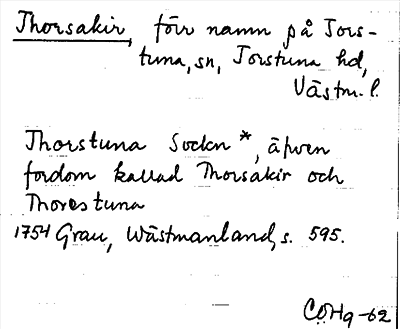 Thorsakir, förr namn på Tors-
tuna, sn, Torstuna hd,
Västm. l.
Thorstuna Sockn *, äfven
fordom kallad Thorsakir och
Thorestuna
1754 Grau, Wästmanland, s. 595.
CÖHg -62